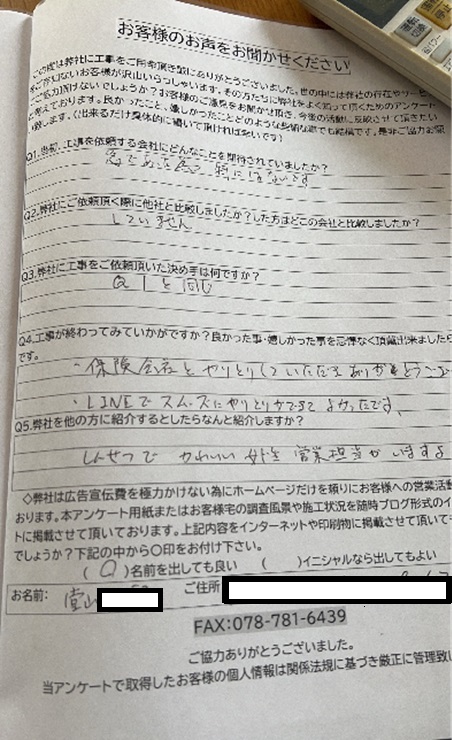 お客様のお声をお聞かせください
この度は弊社に工事をご用命頂き誠にありがとうございました。世の中には弊社の存在やサービ
をご存じないお客様が沢山いらっしゃいます。その方たちに弊社をよく知って頂くためのアンケート
ご協力頂けないでしょうか?お客様のご意見をお聞かせ頂き、今後の活動に反映させて頂きたい
と考えております。良かったこと、嬉しかったことどのような些細な事でも結構です。是非ご協力お願
い致します。(出来るだけ具体的に書いて頂ければ幸いです)
Q1.当初、工事を依頼する会社にどんなことを期待されていましたか?
特にはないです
Q2.弊社にご依頼頂く際に他社と比較しましたか?した方はどこの会社と比較しましたか?
していません
Q3.弊社に工事をご依頼頂いた決め手は何ですか?
Q1と同じ
Q4.工事が終わってみていかがですか?良かった事・嬉しかった事を忌憚なく頂戴出来ましたら
です。
・保険会社とやりとりしていただきありがとうござ
・LINEでスムーズにやりとりができてよかったです。
Q5.弊社を他の方に紹介するとしたらなんと紹介しますか?
しんせつでかわいい 営業担当がいますよ
◇弊社は広告宣伝費を極力かけない為にホームページだけを頼りにお客様への営業活動
おります。本アンケート用紙またはお客様宅の調査風景や施工状況を随時ブログ形式のイ
トに掲載させて頂いております。上記内容をインターネットや印刷物に掲載させて頂いても
でしょうか?下記の中から○印をお付け下さい。
( )名前を出しても良い ( )イニシャルなら出してもよい
お名前: 堂山 ご住所
FAX:078-781-6439
ご協力ありがとうございました。
当アンケートで取得したお客様の個人情報は関係法規に基づき厳正に管理致し